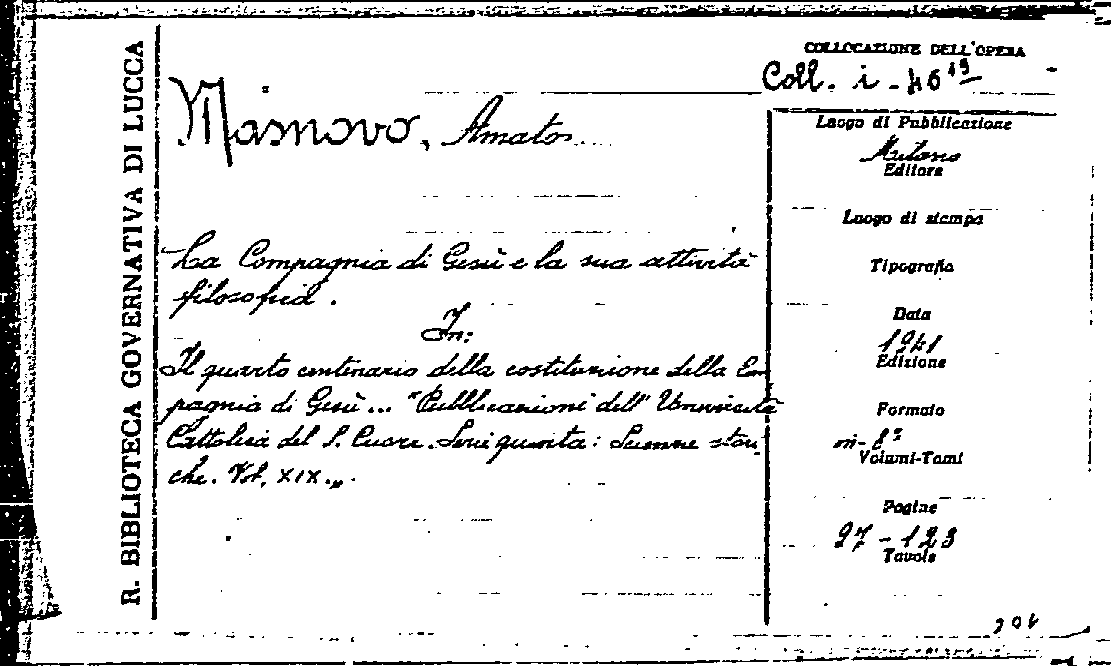 R. BIBLIOTECA GOVERNATIVA DI LUCCA
COLLOCAZIONE DELL'OPERA
Coll. i - 46 19
Masnovo, Amato
Luogo di Pubblicazione
Milano
Editore
Luogo di stampa
La Compagnia di Gesù e la sua attività
filosofia.
Tipografia
In:
Data
1941
Il quarto centenario della costituzione della Com
Edizione
pagnia di Gesù... "Pubblicazioni dell'Università
Formato
in-8°
Cattolica del S. Cuore. Serie quinta: Scienze stori
Volumi-Tomi
che. Vol. XIX.„.
Pagine
97-123
Tavole